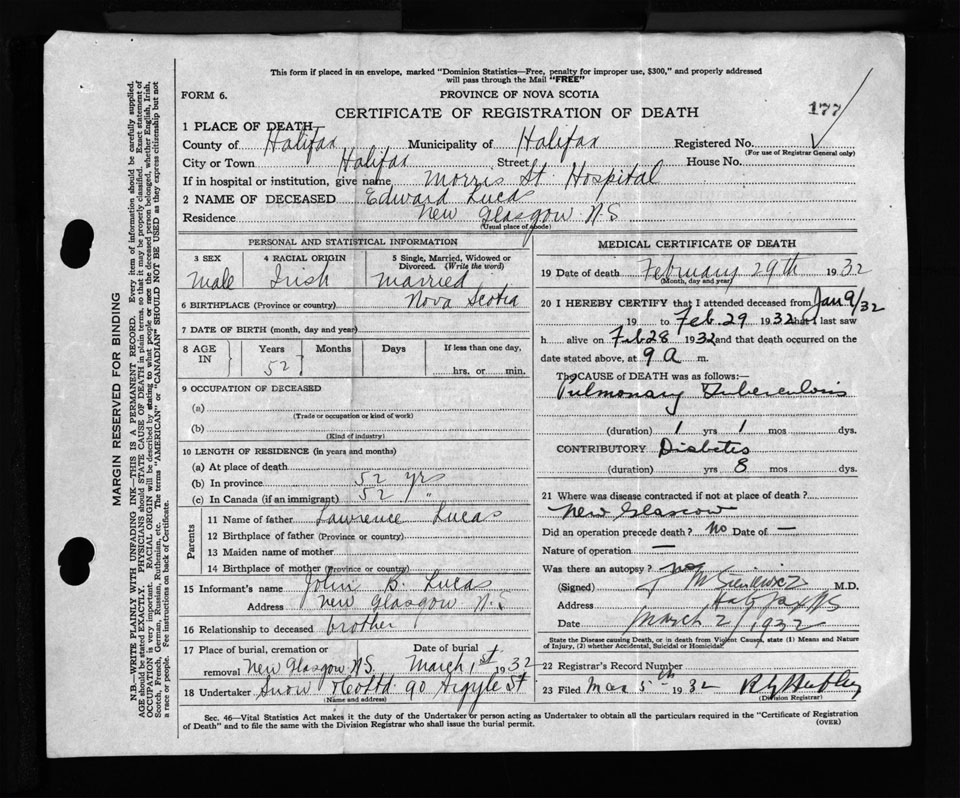 This form if placed in an envelope, marked "Dominion Statistics—Free, penalty for improper use, $300," and properly addressed
will pass through the Mail "FREE"
FORM 6.
PROVINCE OF NOVA SCOTIA
CERTIFICATE OF REGISTRATION OF DEATH
177
1 PLACE OF DEATH
County of Halifax Municipality of Halifax Registered No.
(For use of Registrar General only)
City or Town Halifax Street House No.
If in hospital or institution, give name Morris St Hospital
2 NAME OF DECEASED Edward Lucas
Residence New Glasgow N.S
(Usual place of abode)
PERSONAL AND STATISTICAL INFORMATION
3 SEX 4 RACIAL ORIGIN 5 Single, Married, Widowed or
Divorced. (Write the word)
Male Irish Married
6 BIRTHPLACE (Province or country) Nova Scotia
7 DATE OF BIRTH (month, day and year)
8 AGE IN Years Months Days If less than one day,
52 hrs. or min.
9 OCCUPATION OF DECEASED
(a)
(Trade or occupation or kind of work)
(b)
(Kind of industry)
10 LENGTH OF RESIDENCE (in years and months)
(a) At place of death
(b) In province 52 yrs
(c) In Canada (if an immigrant) 52 "
Parents
11 Name of father Lawrence Lucas
12 Birthplace of father (Province or country)
13 Maiden name of mother
14 Birthplace of mother (Province or country)
15 Informant's name John B. Lucas
Address New Glasgow N.S
16 Relationship to deceased brother
17 Place of burial, cremation or Date of burial
removal New Glasgow N.S. March 1st 1932
18 Undertaker Snow & Co Ltd. 90 Argyle St
(Name and address)
MEDICAL CERTIFICATE OF DEATH
19 Date of death February 29th 1932
(Month, day and year)
20 I HEREBY CERTIFY that I attended deceased from Jan 9/32
19 to Feb. 29 1932 that I last saw
h alive on Feb 28 1932 and that death occurred on the
date stated above, at 9 a m.
The CAUSE OF DEATH was as follows:—
Pulmonary Tuberculosis
(duration) 1 yrs 1 mos dys.
CONTRIBUTORY Diabetes
(duration) yrs 8 mos dys.
21 Where was disease contracted if not at place of death?
New Glasgow
Did an operation precede death? No Date of —
Nature of operation —
Was there an autopsy? no
(Signed) M.D.
Address Halifax NS
Date March 2/1932
State the Disease causing Death, or in death from Violent Causes, state (1) Means and Nature
of Injury, (2) whether Accidental, Suicidal or Homicidal
22 Registrar's Record Number
23 Filed Mar 5th 1932
(Division Registrar)
Sec. 46—Vital Statistics Act makes it the duty of the Undertaker or person acting as Undertaker to obtain all the particulars required in the "Certificate of Registration
of Death" and to file the same with the Division Registrar who shall issue the burial permit.
(OVER)
MARGIN RESERVED FOR BINDING
N.B.—WRITE PLAINLY WITH UNFADING INK—THIS IS A PERMANENT RECORD. Every item of information should be carefully supplied.
AGE should be stated EXACTLY. PHYSICIANS should STATE CAUSE OF DEATH in plain terms, so that it may be properly classified. Exact statement of
OCCUPATION is very important. RACIAL ORIGIN will be described by stating to what people or race the deceased person belonged, whether English, Irish,
Scotch, French, German, Russian, Ruthenian, etc. The terms "AMERICAN" or "CANADIAN" SHOULD NOT BE USED as they express citizenship but not
a race or people. Fee instructions on back of Certificate.